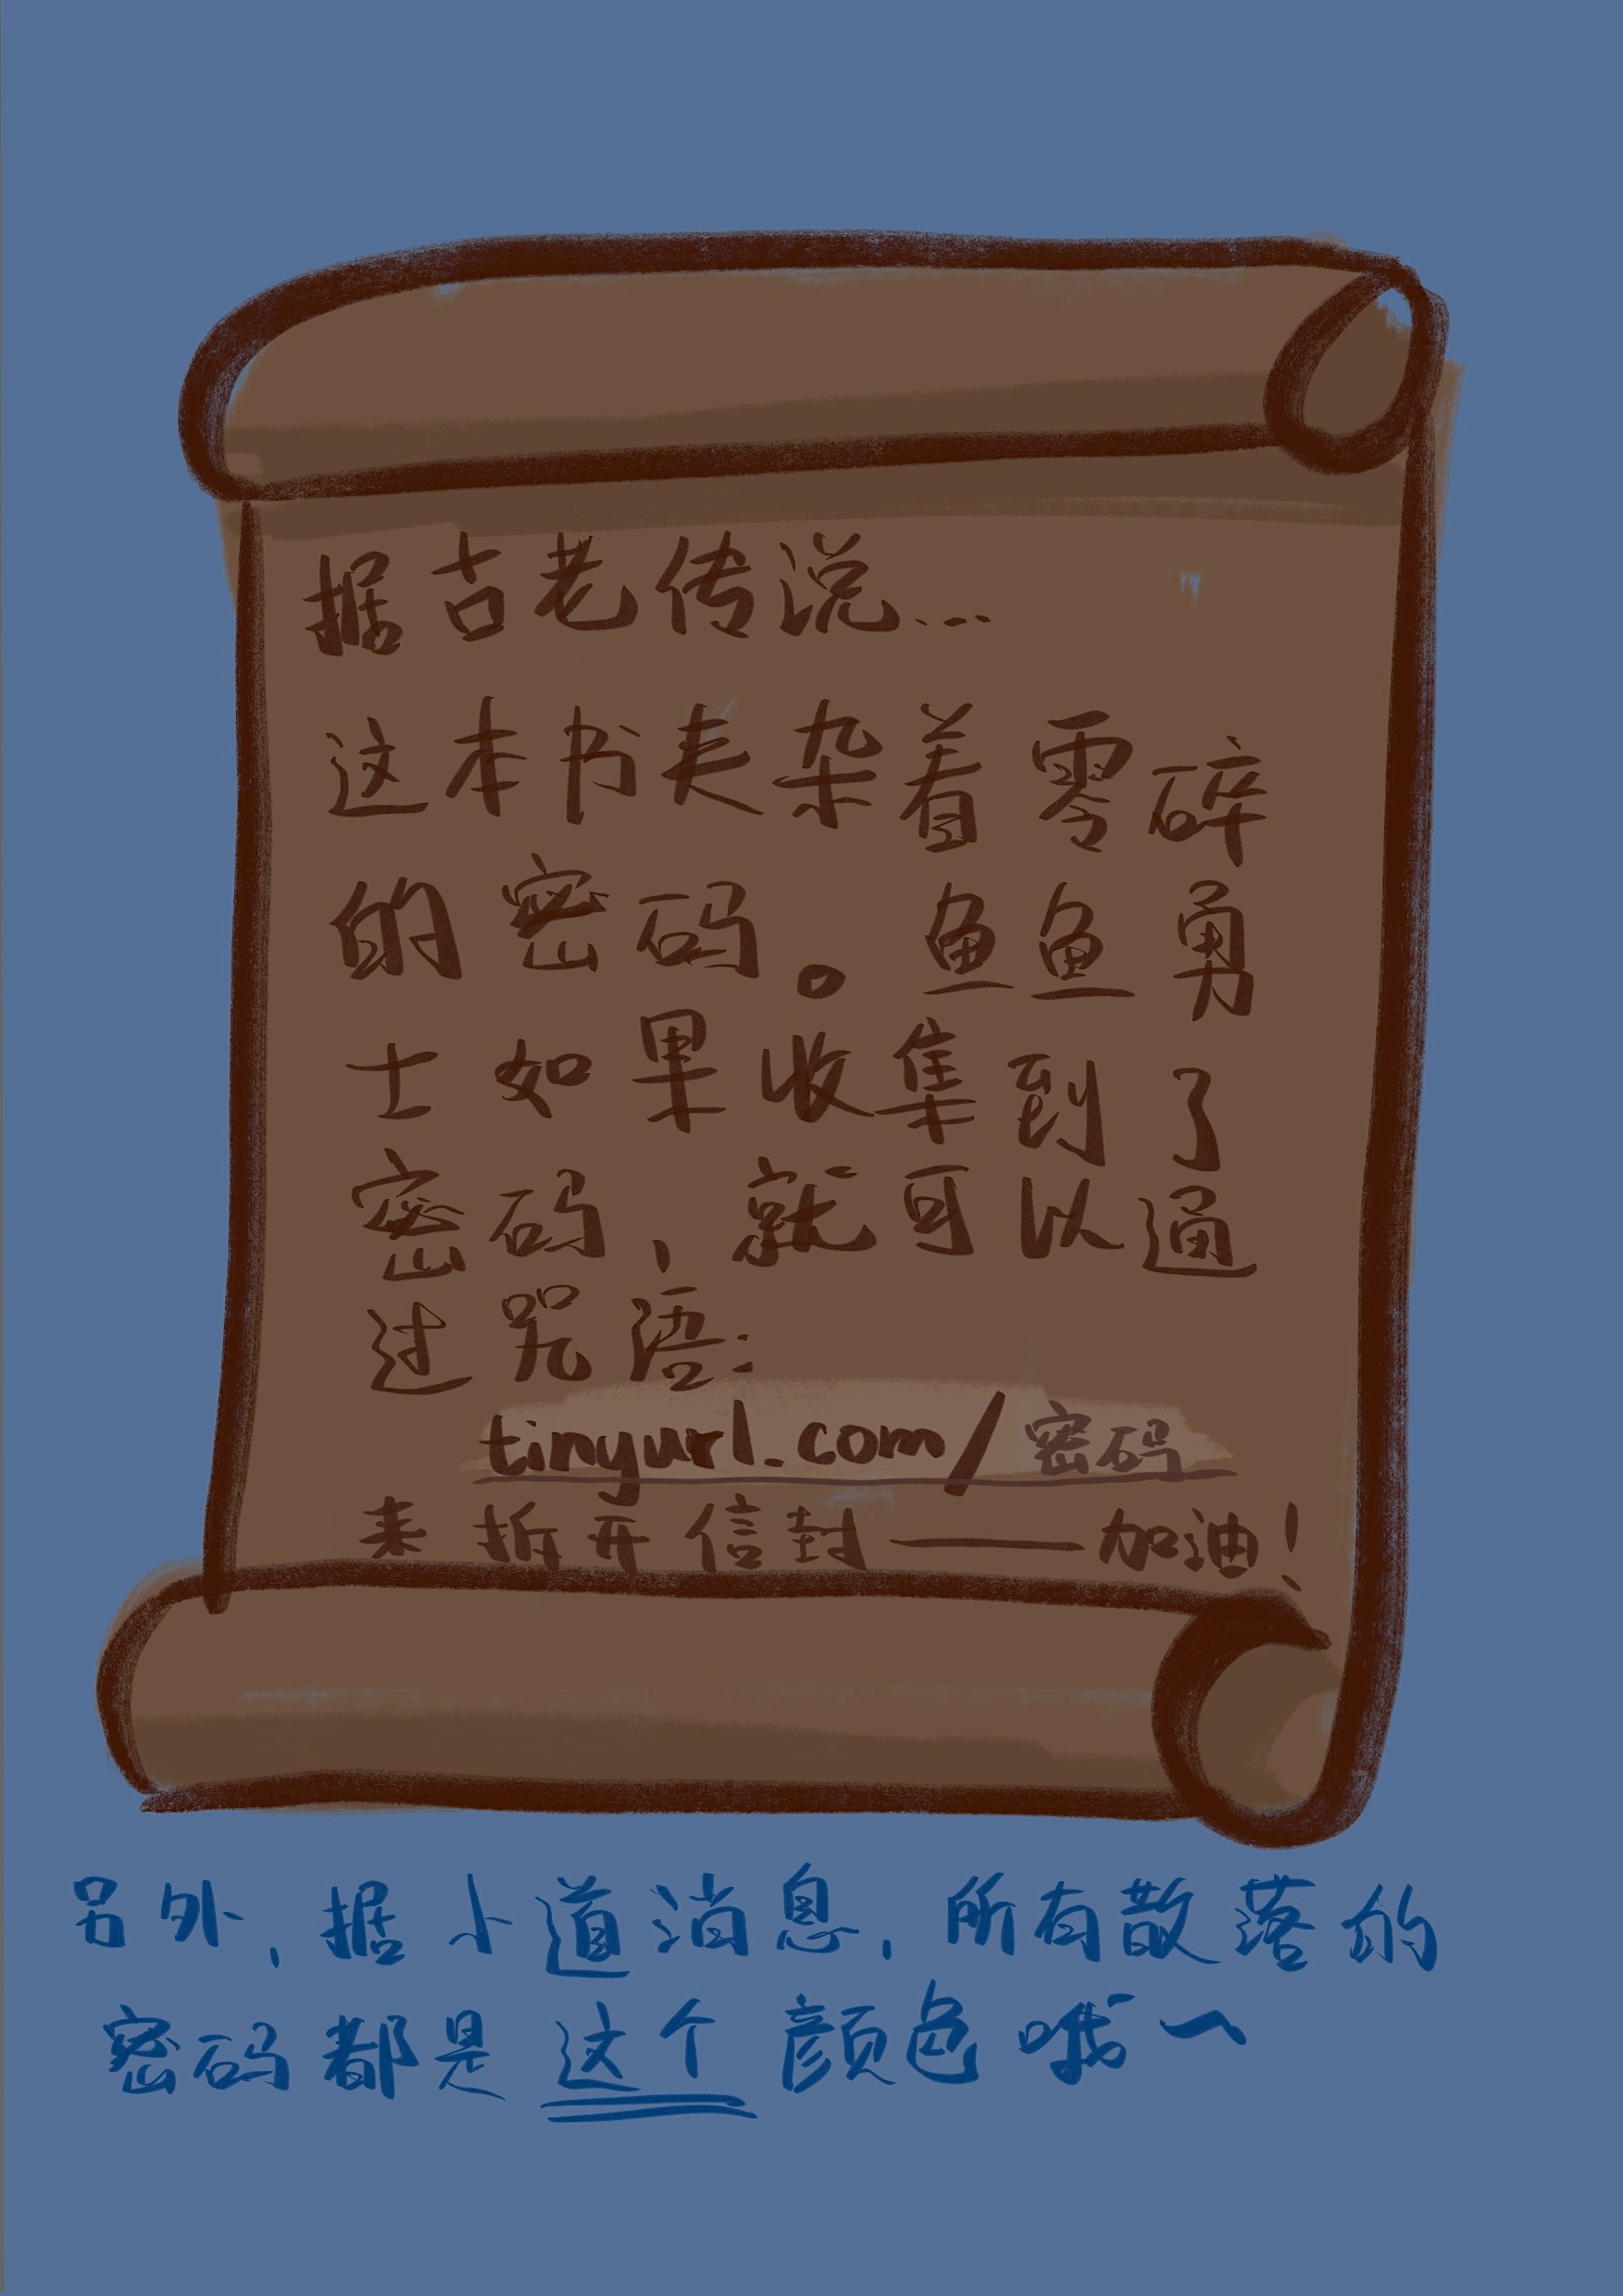 据古老传说...
这本书夹杂着零碎
的密码。鱼鱼勇
士如果收集到了
密码，就可以通
过咒语：
tinyurl.com/密码
来拆开信封——加油！
另外，据小道消息，所有散落的
密码都是这个颜色哦~